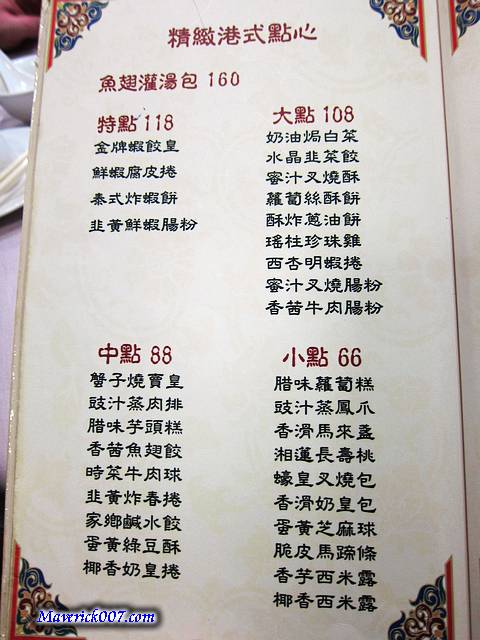 精緻港式點心
魚翅灌湯包 160
特點 118
金牌蝦餃皇
鮮蝦腐皮捲
泰式炸蝦餅
韭黃鮮蝦腸粉
大點 108
奶油焗白菜
水晶韭菜餃
蜜汁叉燒酥
蘿蔔絲酥餅
酥炸蔥油餅
瑤柱珍珠雞
西杏明蝦捲
蜜汁叉燒腸粉
香茜牛肉腸粉
中點 88
蟹子燒賣皇
豉汁蒸肉排
腊味芋頭糕
香茜魚翅餃
時菜牛肉球
韭黃炸春捲
家鄉鹹水餃
蛋黃綠豆酥
椰香奶皇捲
小點 66
腊味蘿蔔糕
豉汁蒸鳳爪
香滑馬來盞
湘蓮長壽桃
蠔皇叉燒包
香滑奶皇包
蛋黃芝麻球
脆皮馬蹄條
香芋西米露
椰香西米露
Maverick007.com